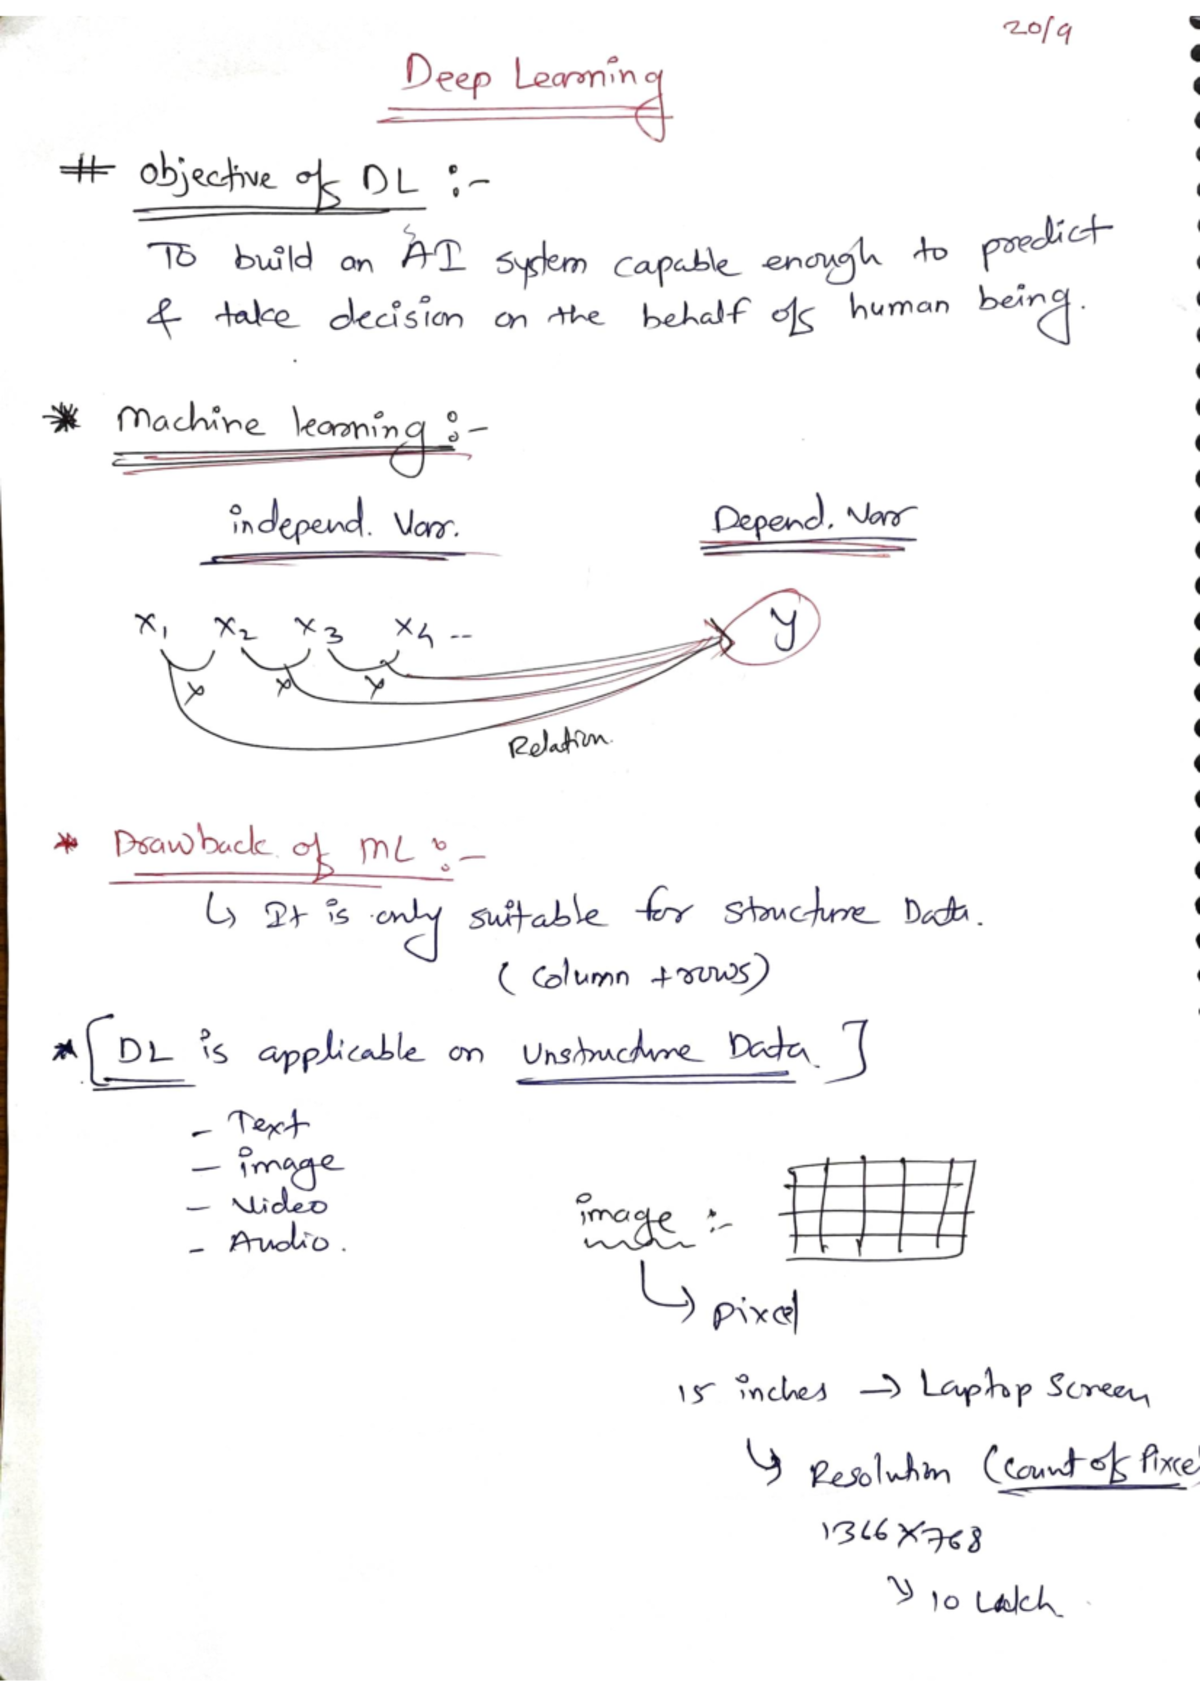 20/9
Deep Learning
# Objective of DL :-
To build an AI system capable enough to predict
& take decision on the behalf of human being.
* Machine learning :-
independ. Var. Depend. Var
x1 x2 x3 x4 -- y
x x x
Relation.
* Drawback of ML :-
↳ It is only suitable for structure Data.
(column + rows)
* [DL is applicable on Unstructure Data.]
- Text
- image
- Video
- Audio.
image :-
↳ pixel
15 inches → Laptop Screen
↳ Resolution (count of Pixce
1366 X 768
↳ 10 Lakh